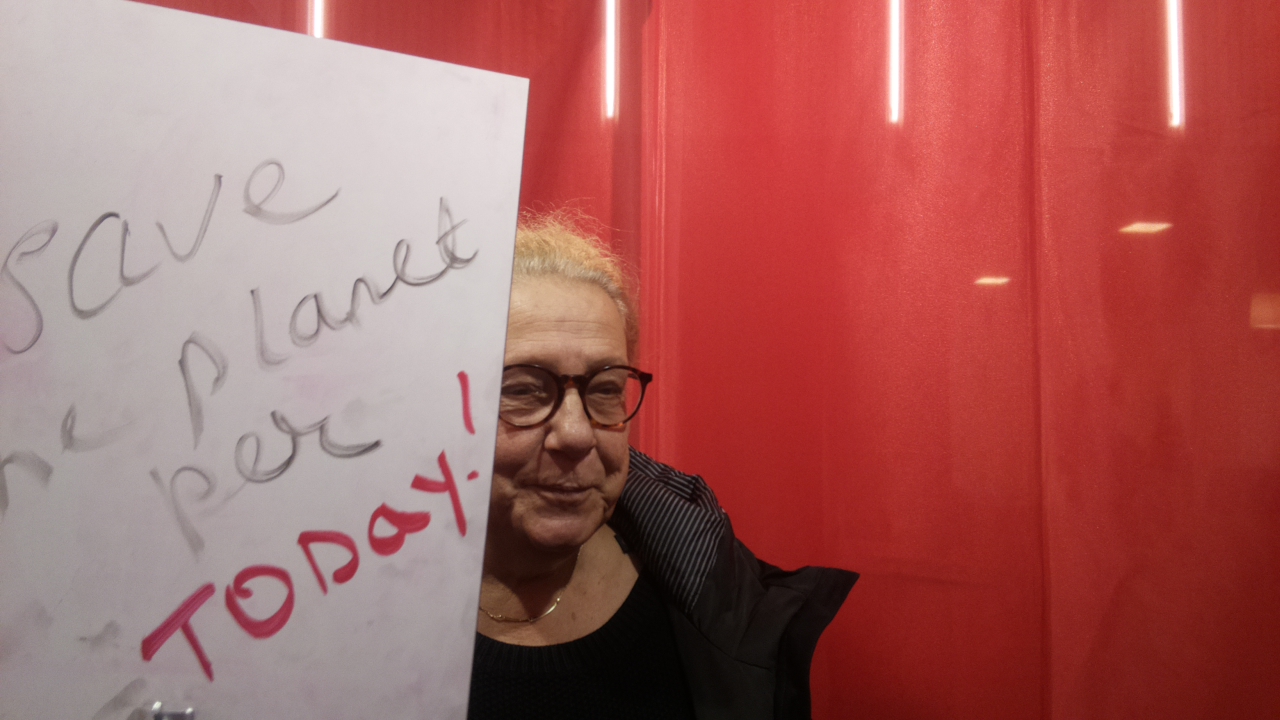 save
he planet
per
TODAY!